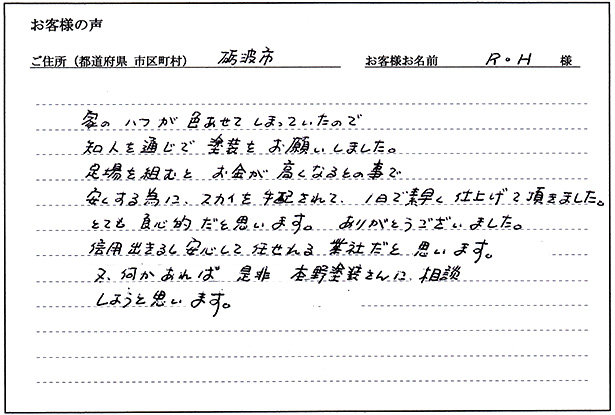 お客様の声
ご住所（都道府県 市区町村） 砺波市 お客様お名前 R・H 様
家の ハフが 色あせて しまっていたので
知人を通じで 塗装を お願いしました。
足場を組むと お金が 高くなるとの事で
安くする為に、スカイを手配されて、1日で素早く仕上げて頂きました。
とても 良心的 だと思います。 ありがとうございました。
信用出きるし安心して任せれる 業社だと 思います。
又、何かあれば 是非 本野塗装さんに 相談
しようと思います。